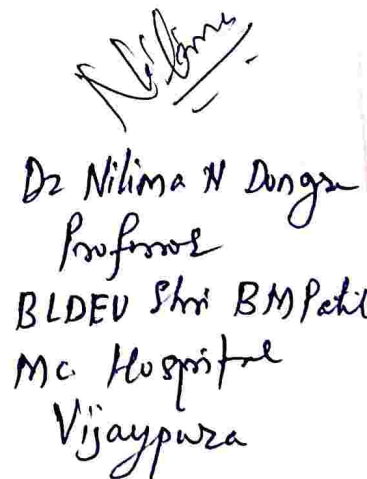 Nilima
Dr Nilima N Dongre
Professor
BLDEU Shri BM Patil
Mc. Hospital
Vijaypura